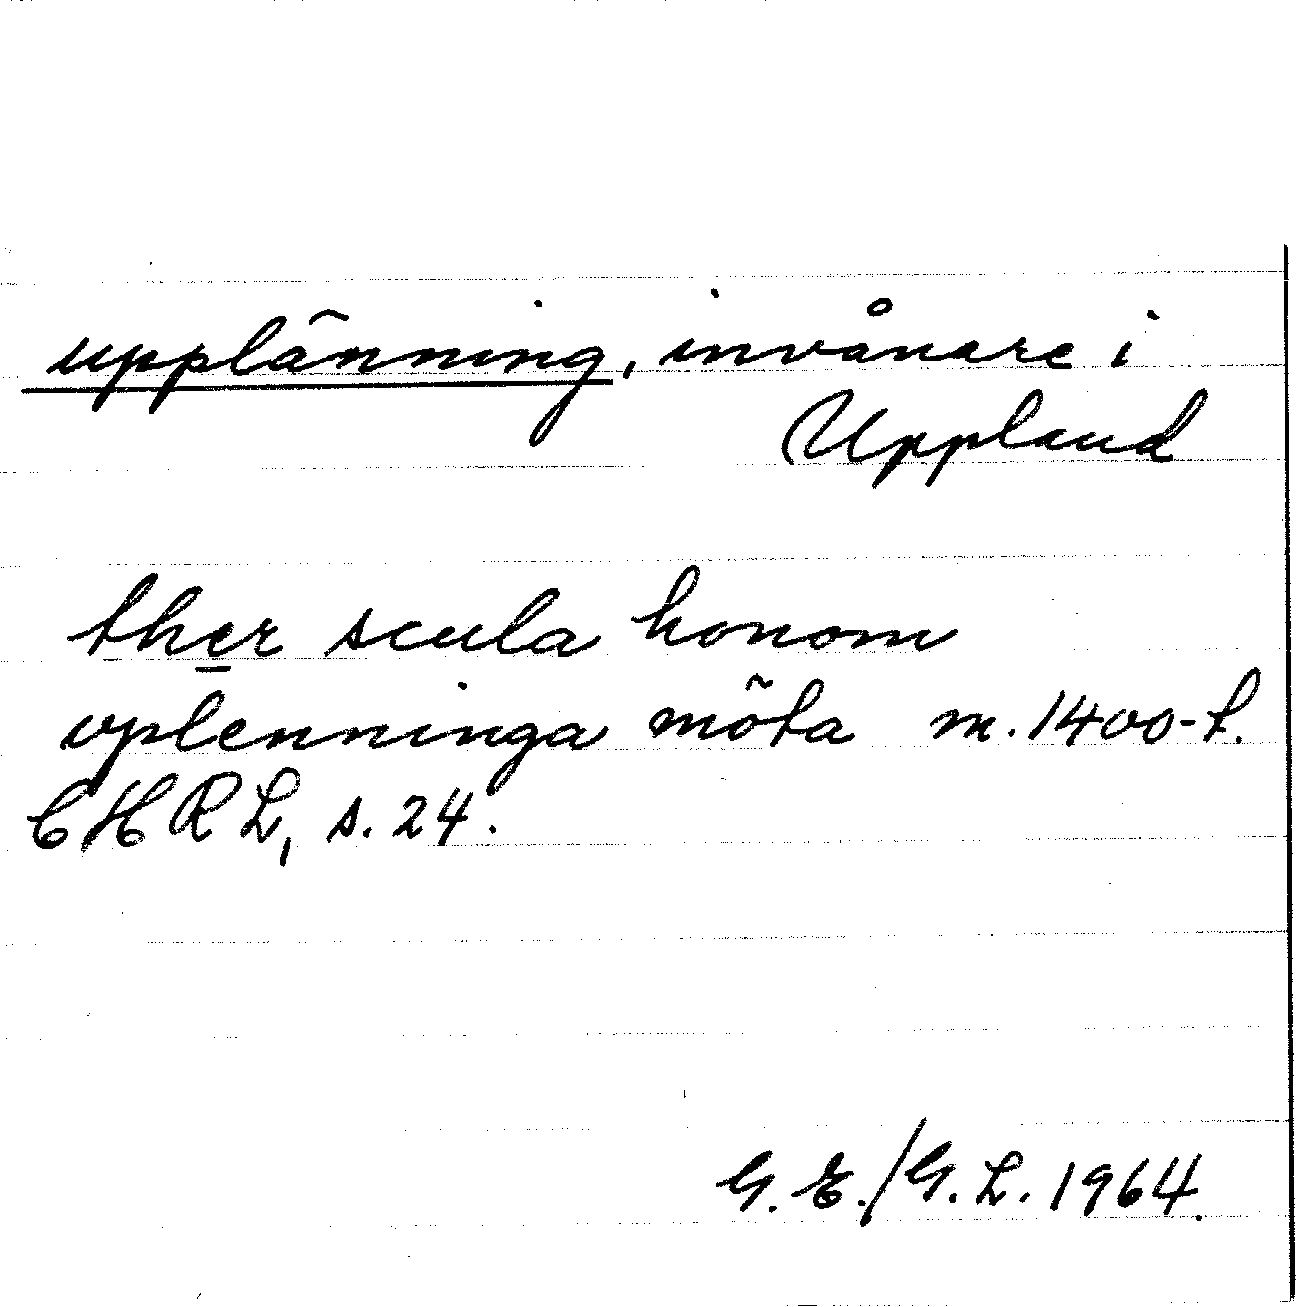 upplänning, invånare i
Uppland
ther scula honom
vplenninga möta m. 1400-t.
CHRL, s. 24.
G. E./G. L. 1964.